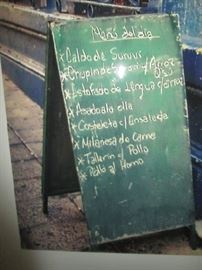 Menú del día
x Caldo de Surubí
x c/ Arroz
x Estofado de Lengua c/arroz
x Asado a la olla
x Costeleta c/Ensalada
x Milanesa de Carne
x Tallarin c/ Pollo
x Pollo al Horno